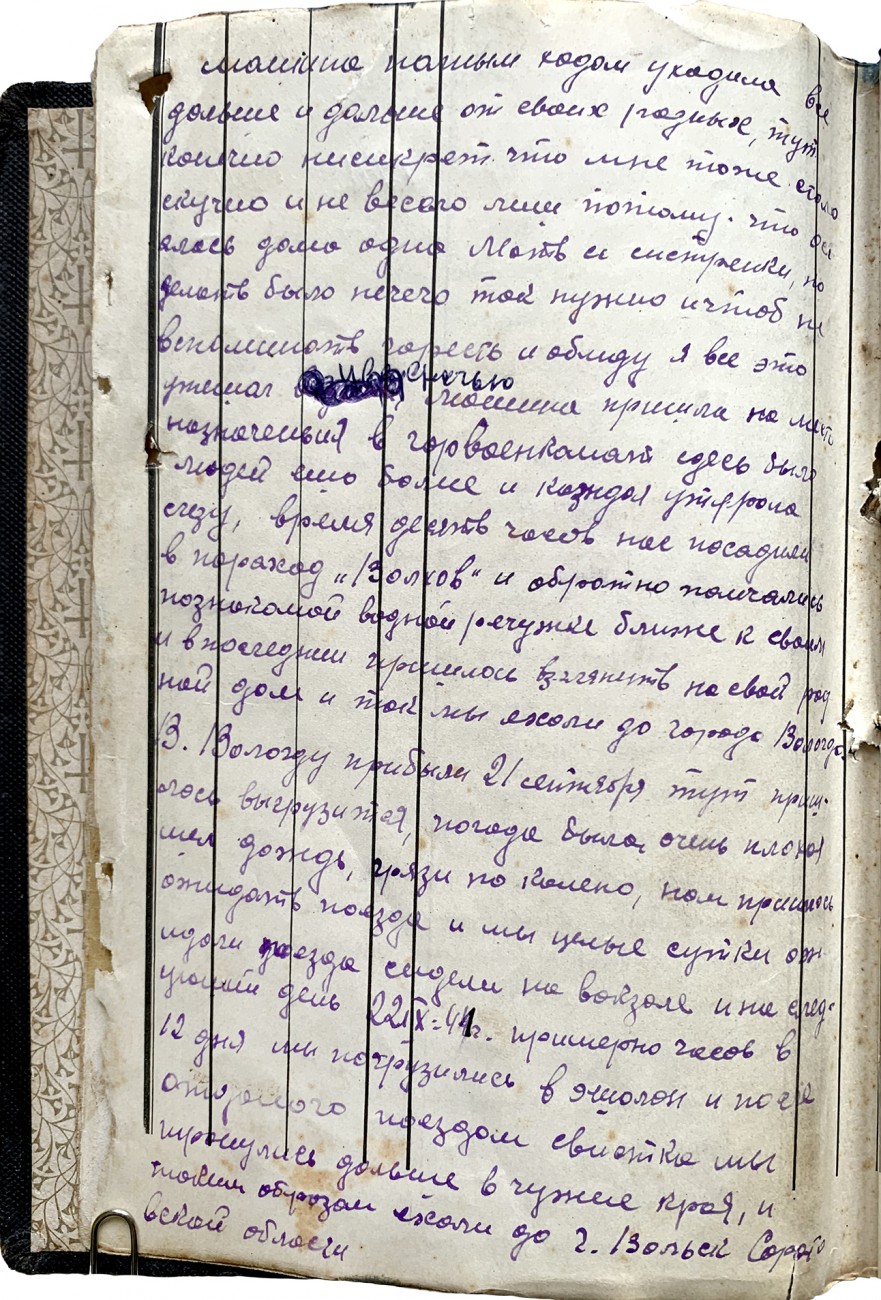 машина полным ходом уходила все
дальше и дальше от своих родных, тут
конечно нисикрет что мне тоже стало
скучно и не весого лиш потому. что ос
алось дома одна Мать и систренки, но
делать было нечего так нужно ичтоб ни
вспоминать горесть и обиду я все это
ужимал и в 9 с ночью машина пришла на место
назначения в горвоенкомат сдесь было
людей ешо болие и каждая утяррала
слезу, время десять часов нас посадили
в параход „Волхов" и обратно помчались
познакомой водной речужке ближе к своим
и впоследнии пришлось взглянуть на свой род
ной дом и так мы ехали до города Вологда
В. Вологду прибыли 21 сентября тут приш-
лось выгрузится, погода была очень плохая
шел дождь, грязи по колено, нам пришлось
ожидать поезда и мы целые сутки ож-
идали поезда сидели на вокзале и на след-
уюшии день 22 IX-41г. примерно часов в
12 дня мы погрузились в эшолон и после
поездом свистка мы
тронулись дальше в чужие края, и
таким образом ехали до г. Вольск Сарато
вской области